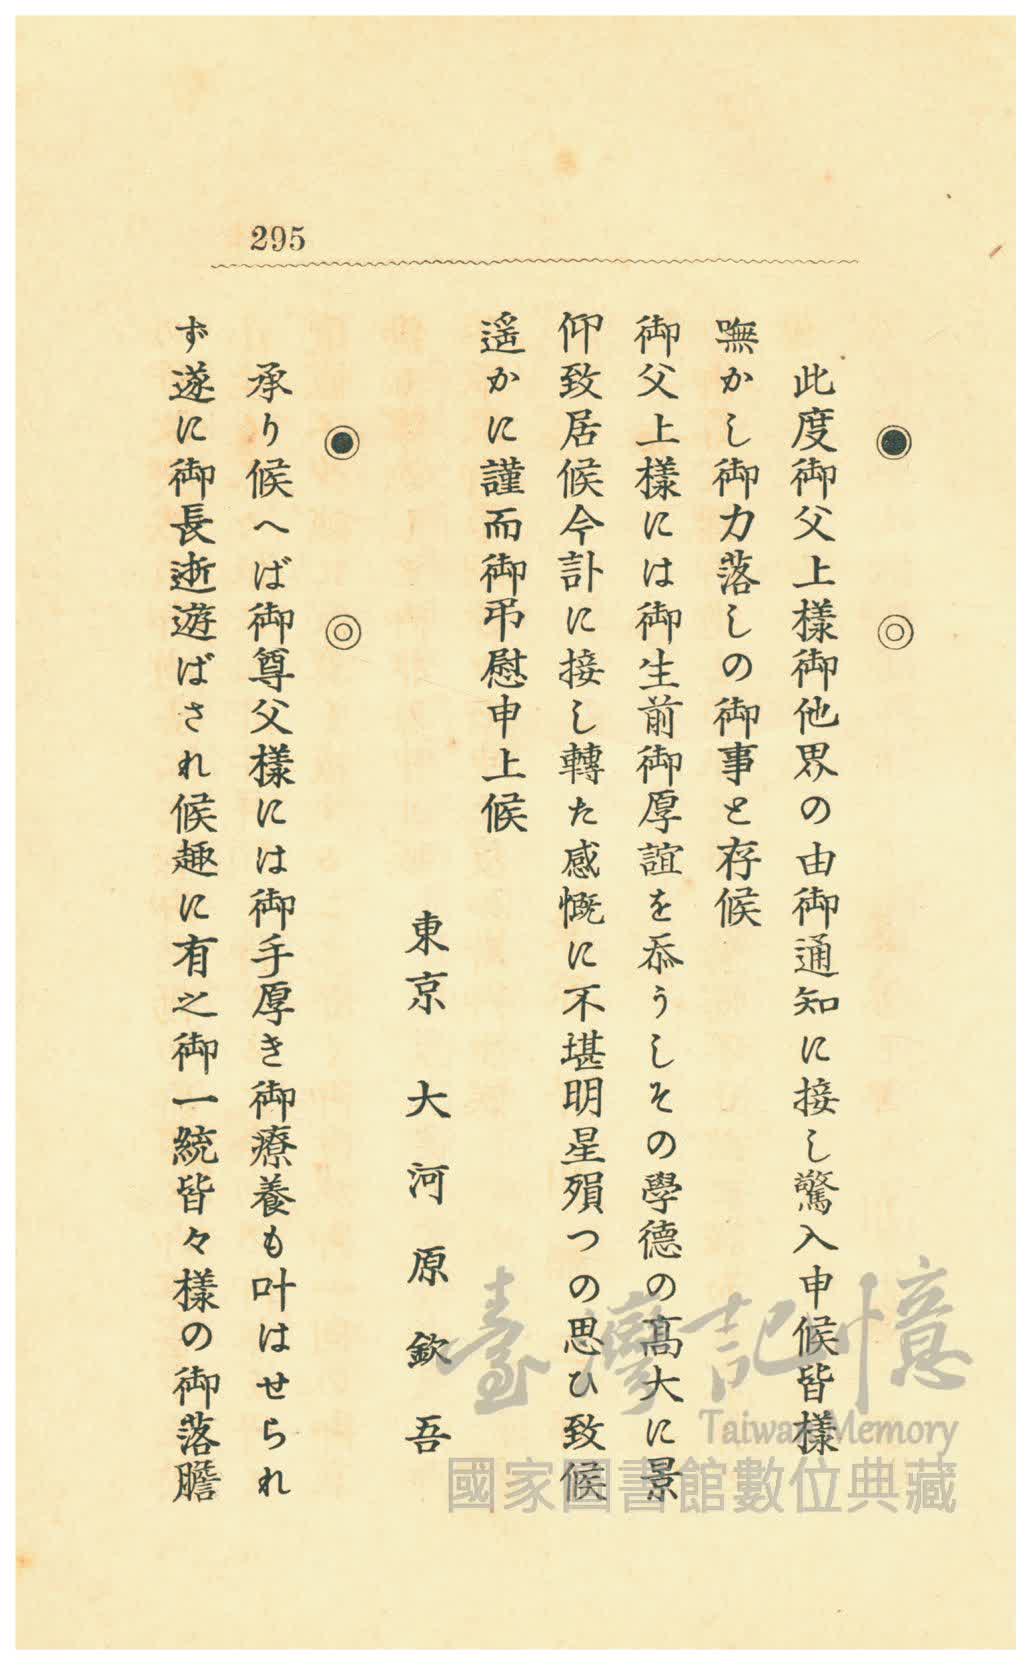 295
◉ ◎
此度御父上樣御他界の由御通知に接し驚入申候皆樣
嘸かし御力落しの御事と存候
御父上樣には御生前御厚誼を忝うしその學德の高大に景
仰致居候今訃に接し轉た感慨に不堪明星殞つの思ひ致候
遙かに謹而御弔慰申上候
東京 大河原欽吾
◉ ◎
承り候へば御尊父樣には御手厚き御療養も叶はせられ
ず遂に御長逝遊ばされ候趣に有之御一統皆々樣の御落膽
臺灣記憶
Taiwan Memory
國家圖書館數位典藏